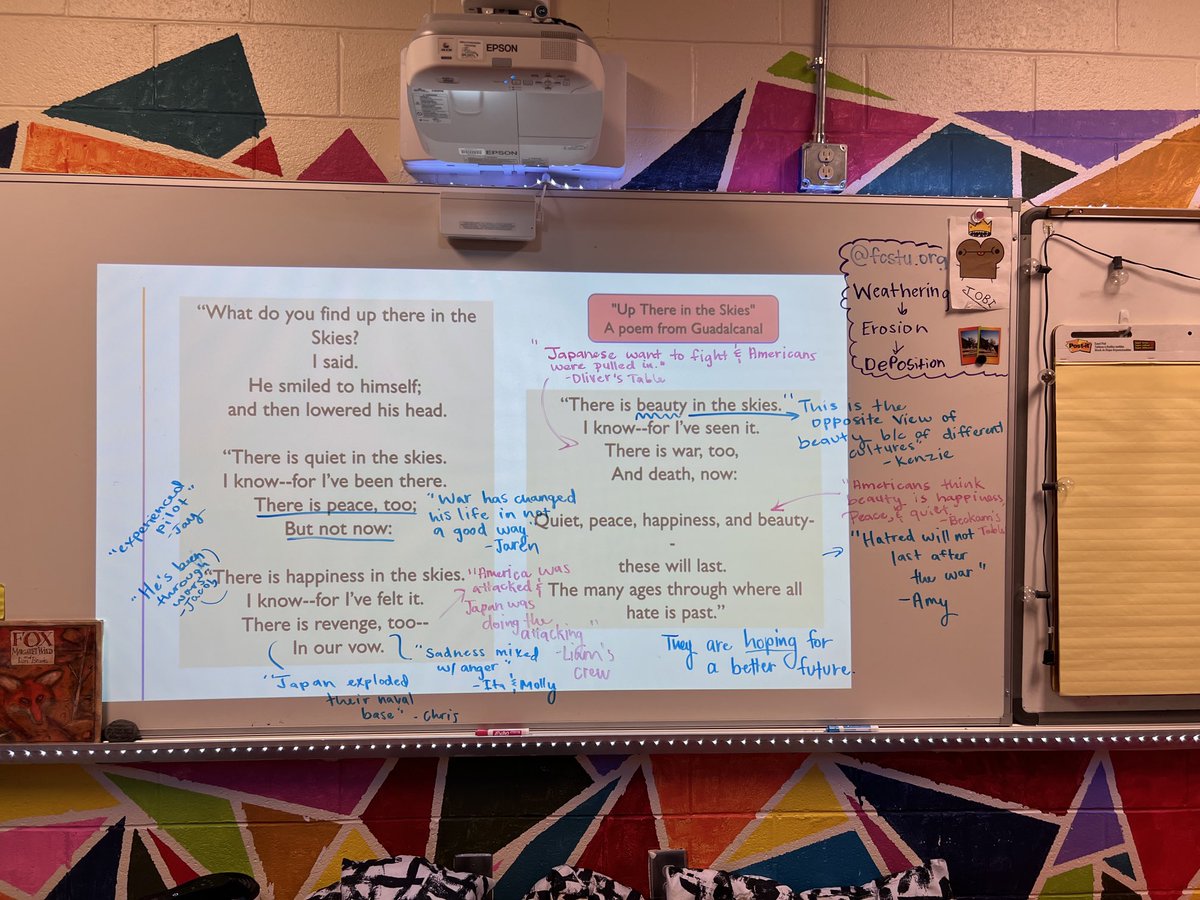 EPSON
EPSON
"What do you find up there in the
Skies?
I said.
He smiled to himself;
and then lowered his head.
"There is quiet in the skies.
I know--for I've been there.
There is peace, too;
But not now:
"There is happiness in the skies.
I know--for I've felt it.
There is revenge, too--
In our vow.
"experienced
pilot"
-Jay
"He's been
through
wars"
-Jacob
"War has changed
his life in not
a good way."
-Jaren
"America was
attacked &
Japan was
doing the
attacking"
-Liam's
crew
"Sadness mixed
w/anger"
-Ita & Molly
"Japan exploded
their naval
base" - Chris
"Up There in the Skies"
A poem from Guadalcanal
"Japanese want to fight & Americans
were pulled in."
-Oliver's Table
"There is beauty in the skies."
I know--for I've seen it.
There is war, too,
And death, now:
Quiet, peace, happiness, and beauty-
-
these will last.
The many ages through where all
hate is past."
They are hoping for
a better future.
This is the
opposite view of
beauty b/c of different
cultures"
-Kenzie
"Americans think
beauty is happiness
Peace, & quiet.
Table
"Hatred will not
last after
the war"
-Amy
@fcstu.org
Weathering
Erosion
Deposition
TOBI
Post-it
FOX
MARGARET WILD